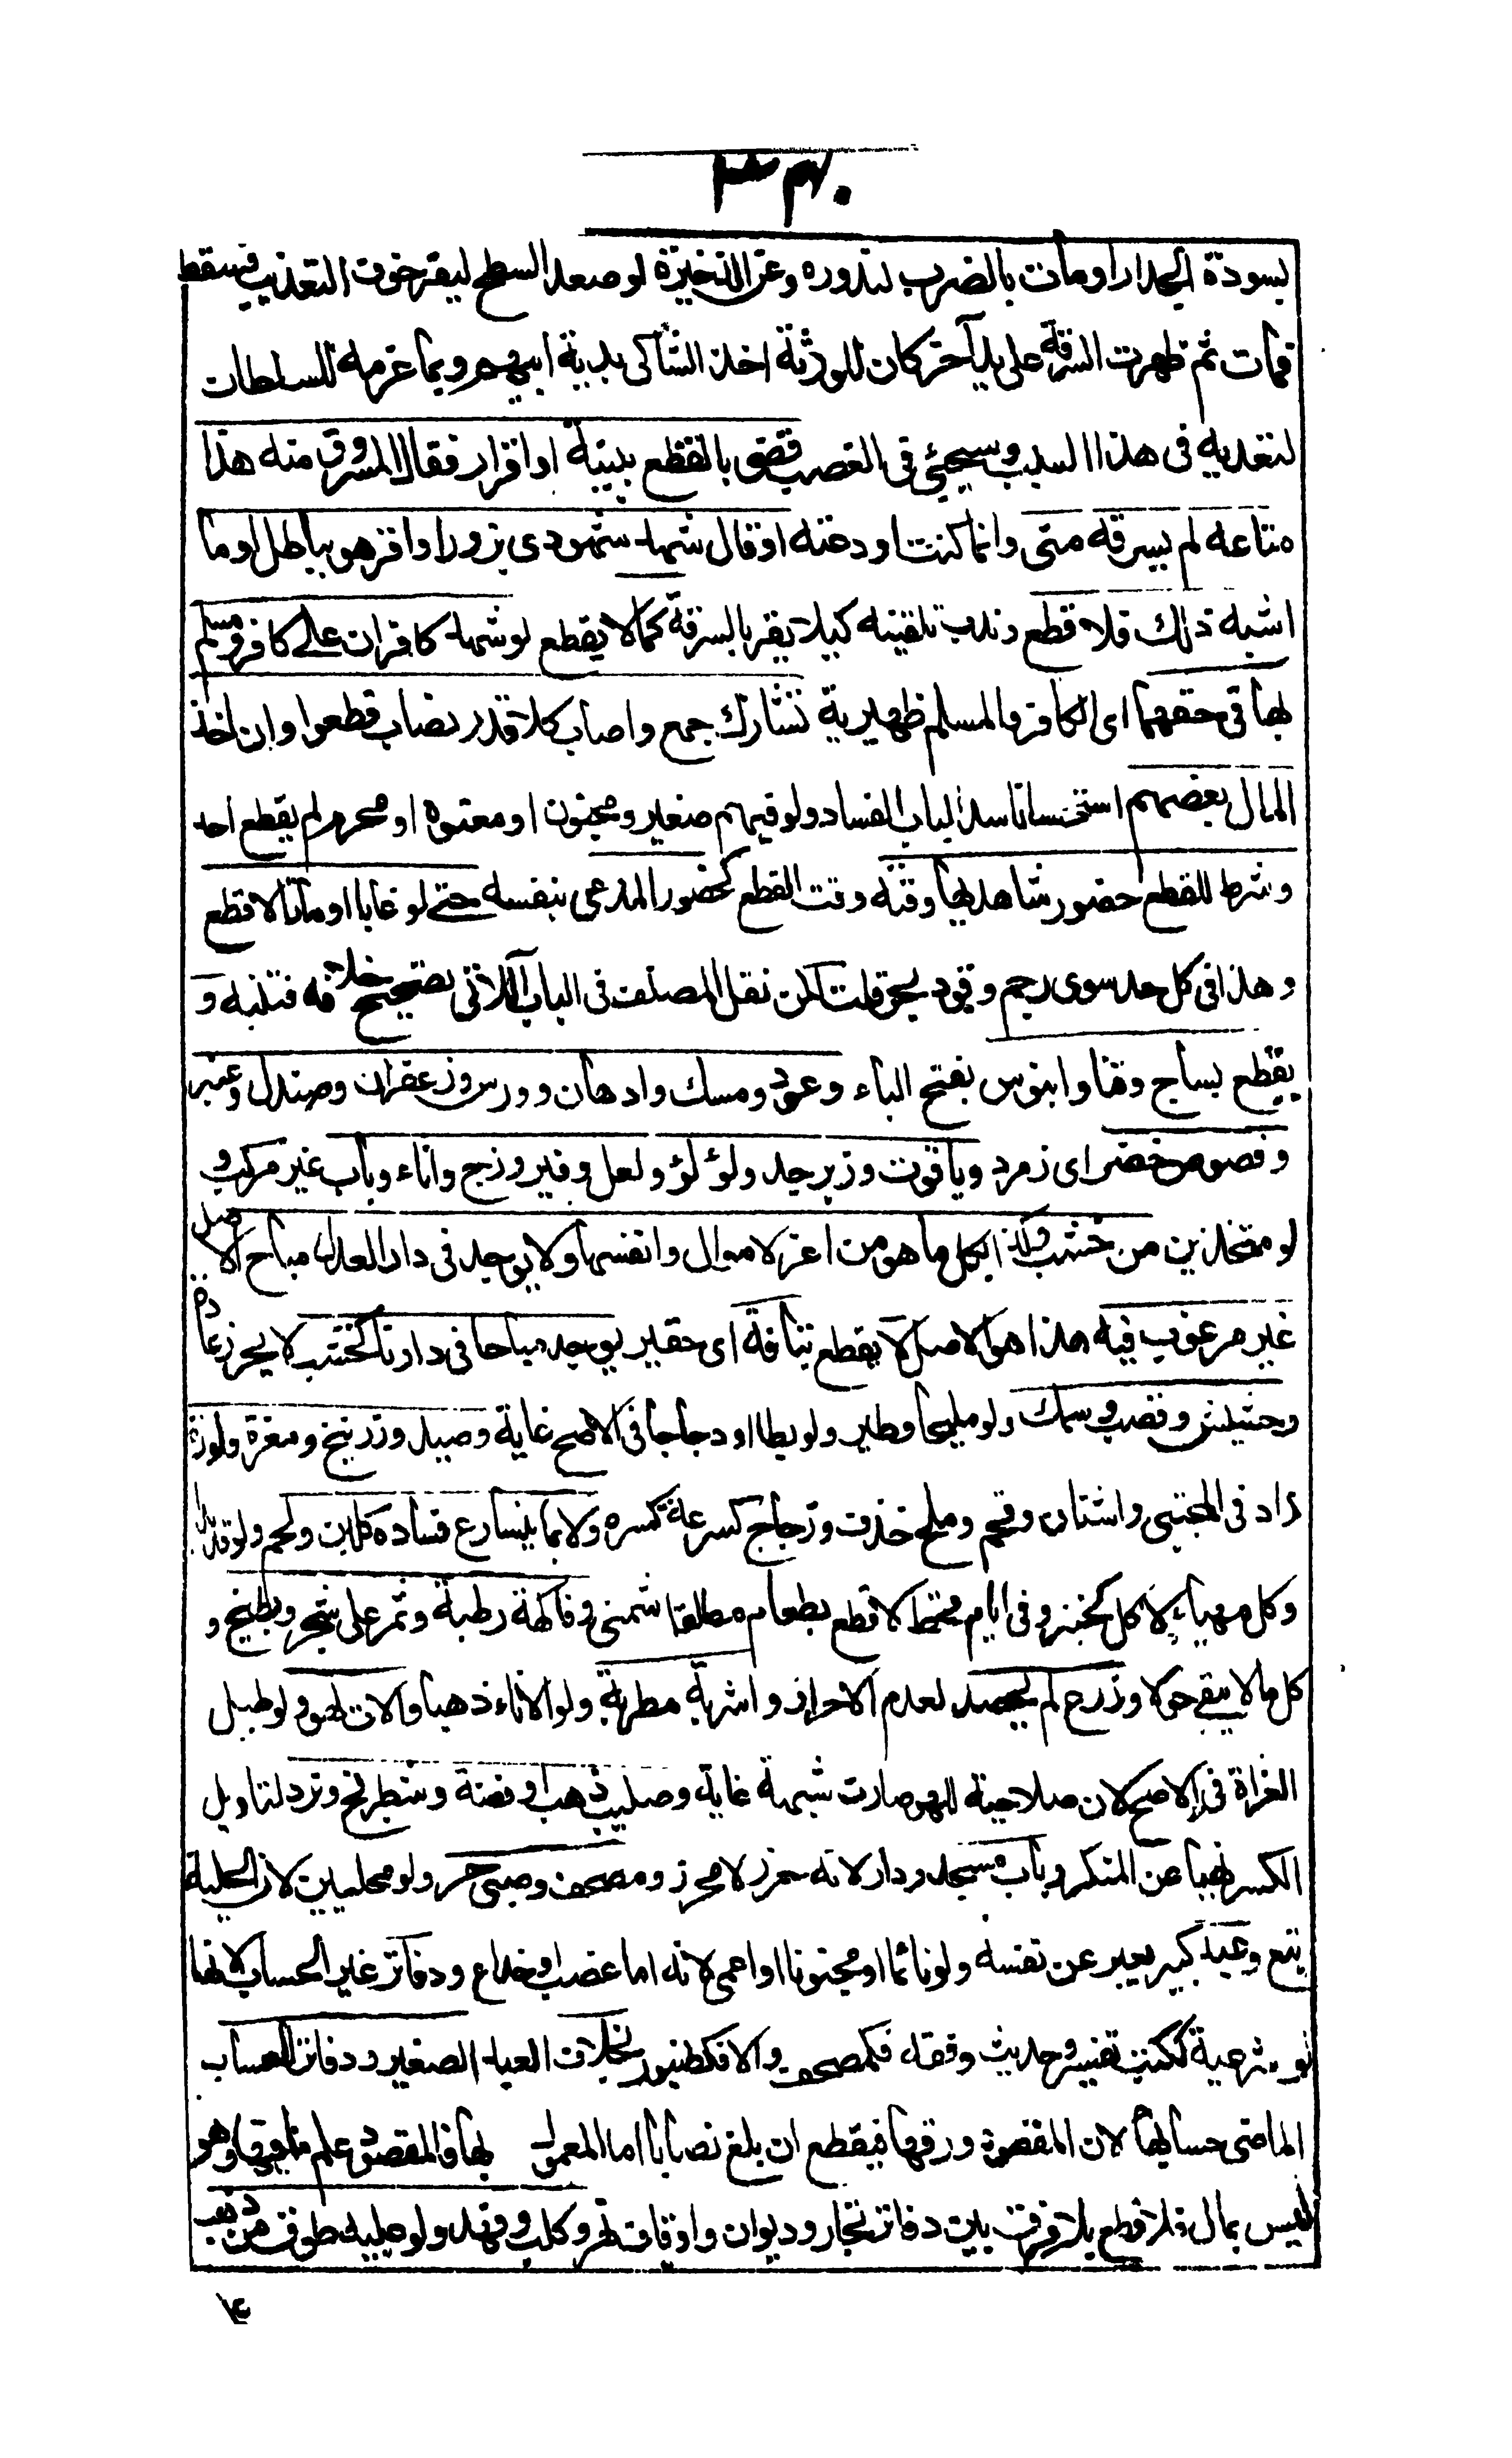 ٣٤٠
بسوده الجدار او مات بالضرب لندوره وعن الذخيرة لو صعد السطح ليفر خوف التعذيب فسقط
فمات ثم ظهرت السرقة على يد آخر كان للورثة اخذ الشاكى بدية ابيهم وبما غرمه للسلطان
لتعديه فى هذا السبب وسيجئ فى الغصب قضى بالقطع ببينة او اقرار فقال المسروق منه هذا
متاعه لم يسرقه منى وانما كنت اودعته او قال شهد شهودى بزور او اقر هو بباطل او ما
اشبه ذلك فلا قطع وندب تلقينه كيلا يقر بالسرقة كما لا يقطع لو شهد كافران على كافر ومسلم
بها فى حقهما اى الكافر والمسلم ظهيرية تشارك جمع واصاب كلا قدر نصاب قطعوا وان اخذ
المال بعضهم استحسانا سدا لباب الفساد ولو فيهم صغير ومجنون او معتوه او محرم لم يقطع احد
وشرط للقطع حضور شاهديها وقته وقت القطع كحضور المدعى بنفسه حتى لو غابا او ماتا لا قطع
وهذا فى كل حد سوى رجم وقود بحر قلت لكن نقل المصنف فى الباب الاتى تصحيح خلافه فتنبه و
يقطع بساج وقنا وابنوس بفتح الباء وعود ومسك وادهان وورس وزعفران وصندل وعنبر
وفصوص خضر اى زمرد وياقوت وزبرجد ولؤلؤ ولعل وفيروزج واناء وباب غير مركب و
لو متخذين من خشب وكذا بكل ما هو من اعز الاموال وانفسها ولا يوجد فى دار العدل مباح الاصل
غير مرغوب فيه هذا هو الاصل لا يقطع بتافه اى حقير يوجد مباحا فى دارنا كخشب لا يحرز عادة
وحشيش وقصب وسمك ولو مليحا وطير ولو بطا او دجاجا فى الاصح غاية وصيد وزرنيخ ومغرة ونورة
زاد فى المجتبى واشنان وفحم وملح خذف وزجاج لسرعة كسره ولا بما يتسارع فساده كلبن ولحم ولو قديدا
وكل مهيأ لاكل كخبز وفى ايام قحط لا قطع بطعام مطلقا شمنى وفاكهة رطبة وثمر على شجر وبطيخ و
كل ما لا يبقى حولا وزرع لم يحصد لعدم الاحراز واشربة مطربة ولو الاناء ذهبا والات لهو ولو طبل
الغزاة فى الاصح لان صلاحيته للهو صارت شبهة غاية وصليب ذهب او فضة وشطرنج ونرد لتاويل
الكسر نهيا عن المنكر وباب مسجد ودار لانه حرز لا محرز ومصحف وصبى حر ولو محليين لان الحلية
تبع وعبد كبير يعبر عن نفسه ولو نائما او مجنونا او اعمى لانه اما غصب او خداع ودفاتر غير الحساب لانها
لو شرعية ككتب تفسير وحديث وفقه فكمصحف والا فكطنبور بخلاف العبد الصغير ودفاتر الحساب
الماضى حسابها لان المقصود ورقها فيقطع ان بلغ نصابا اما المعمول بها فالمقصود علم ما فيها وهو
ليس بمال فلا قطع بلا فرق بين دفاتر تجار وديوان واوقاف نهر وكلب وفهد ولو عليه طوق من ذهب